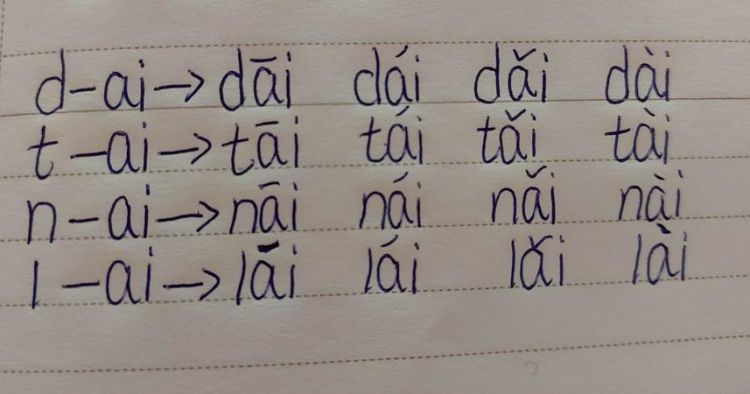 d-ai→dāi dái dǎi dài
t-ai→tāi tái tǎi tài
n-ai→nāi nái nǎi nài
l-ai→lāi lái lǎi lài